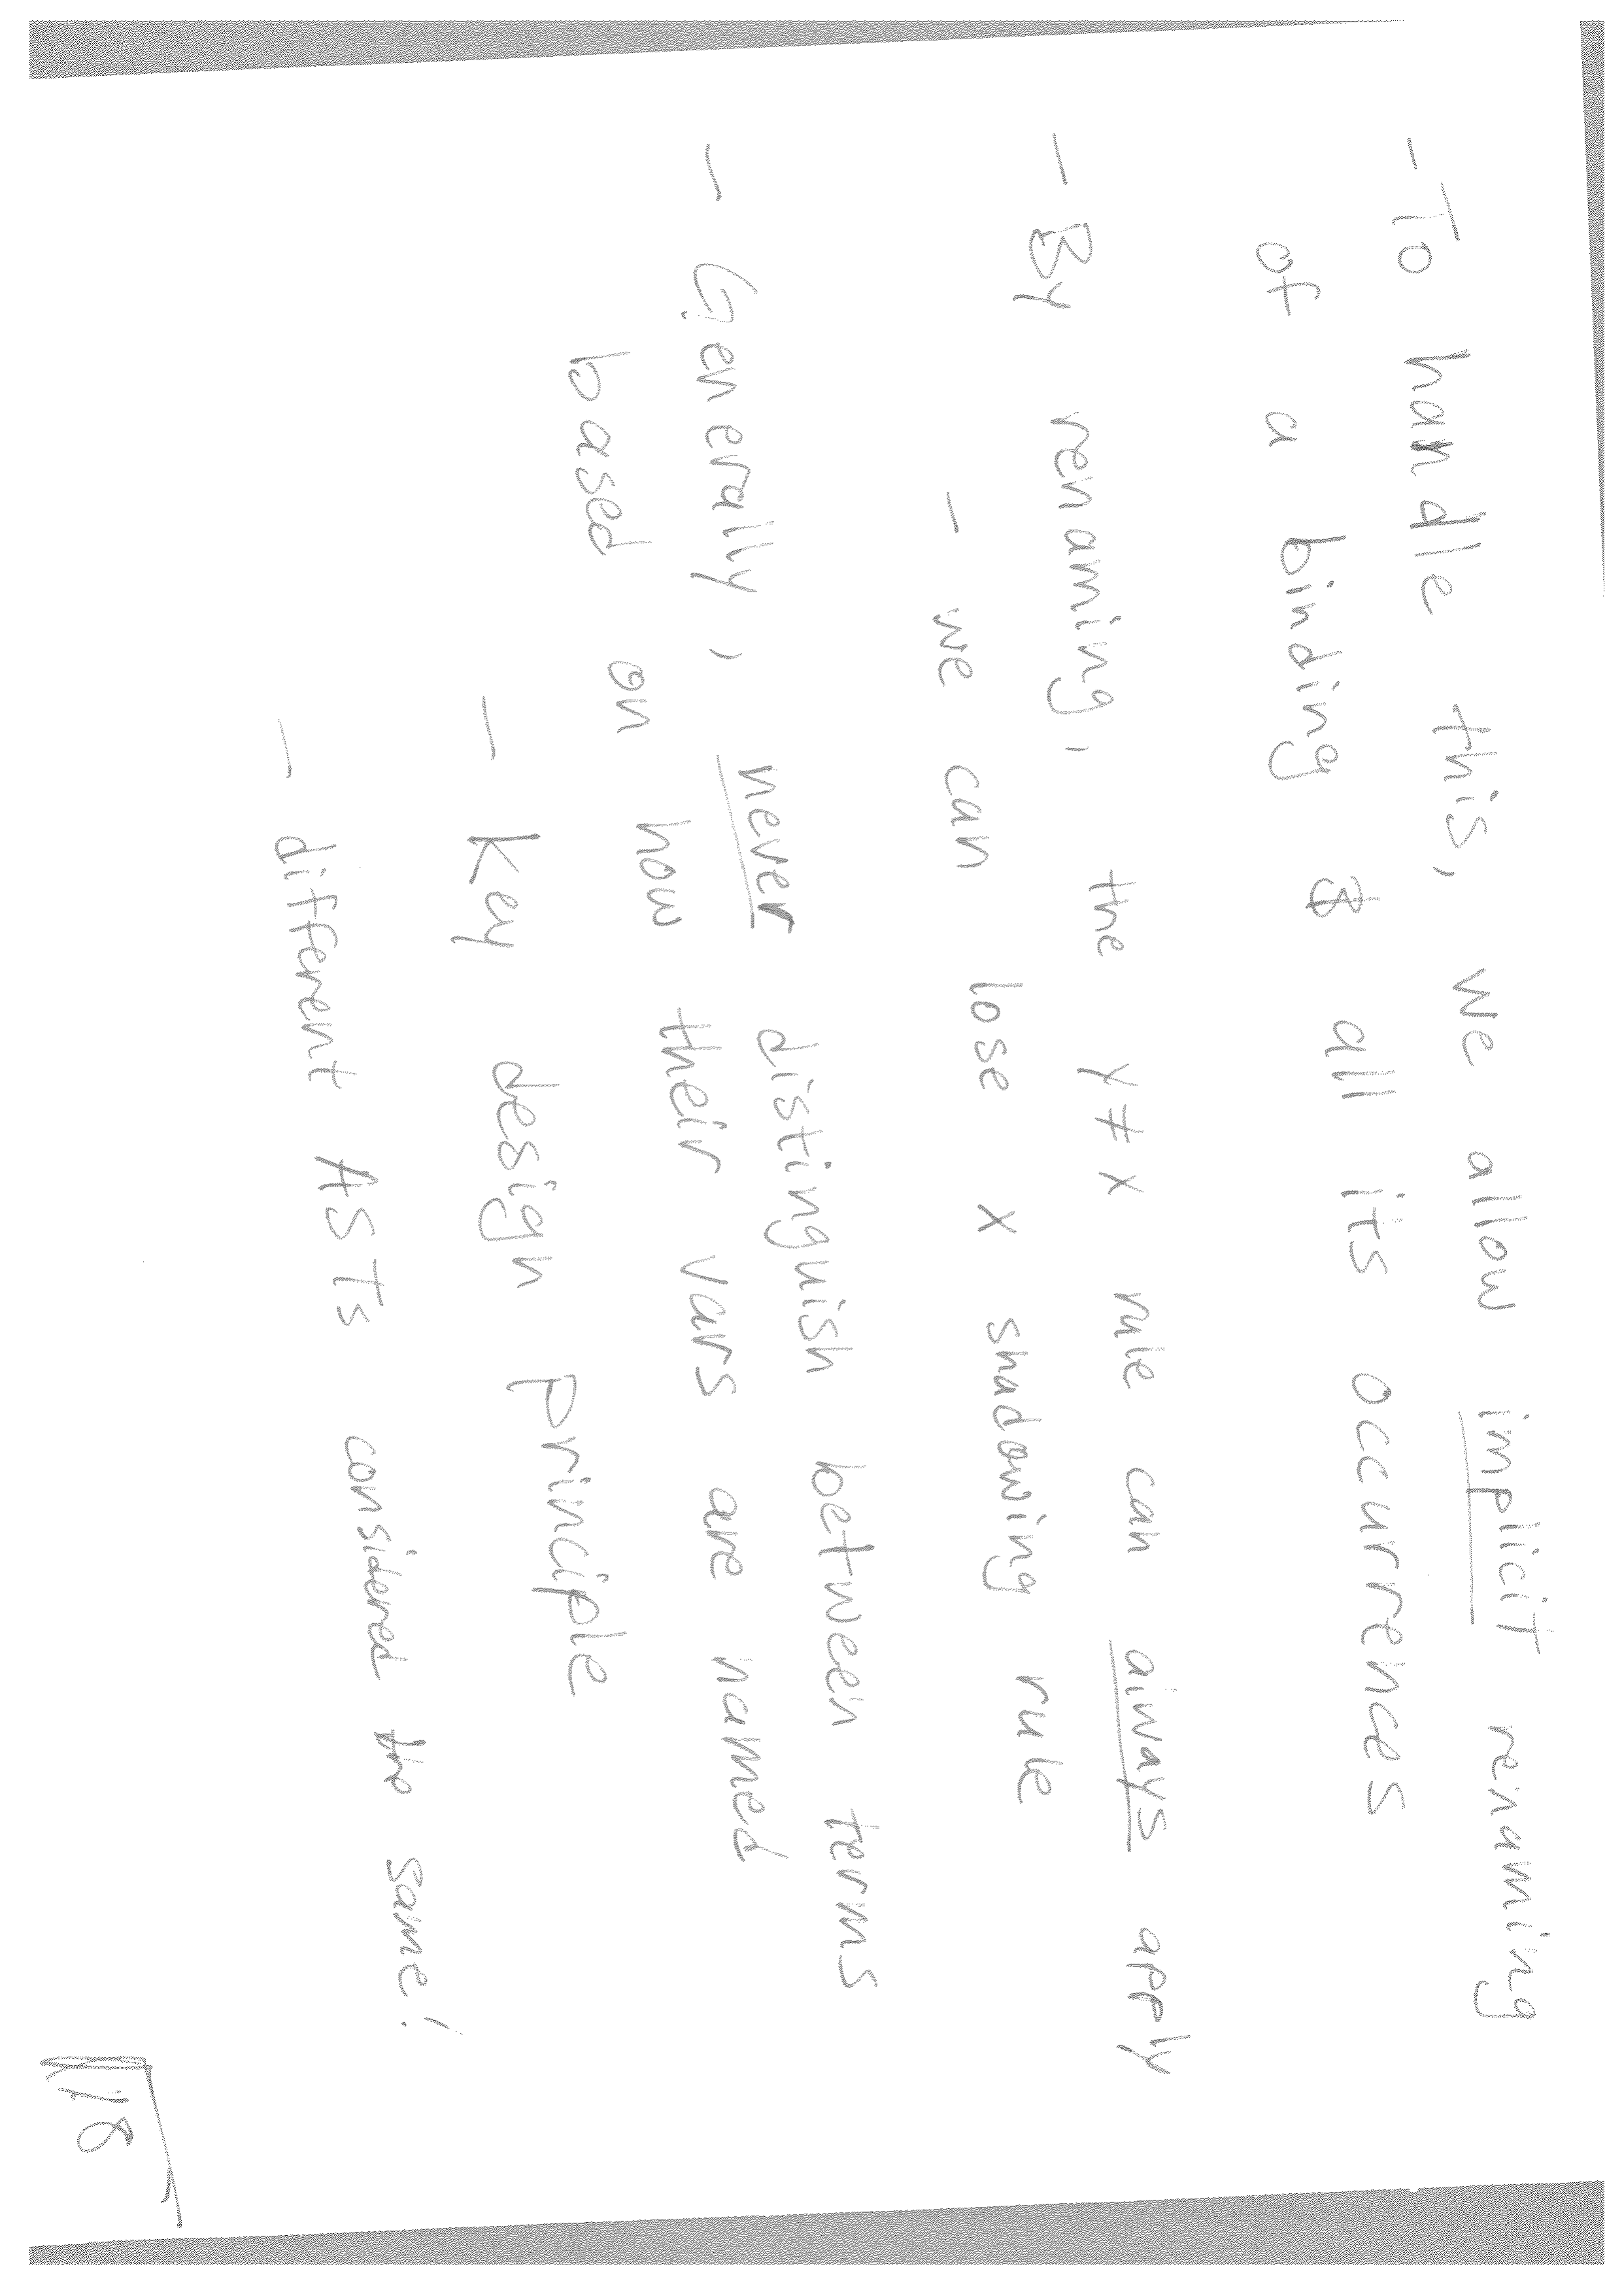 - To handle this, we allow implicit renaming
of a binding & all its occurrences
- By renaming, the y ≠ x rule can always apply
- we can lose x shadowing rule
- Generally, never distinguish between terms
based on how their vars are named
- Key design principle
- different ASTs considered the same!
18